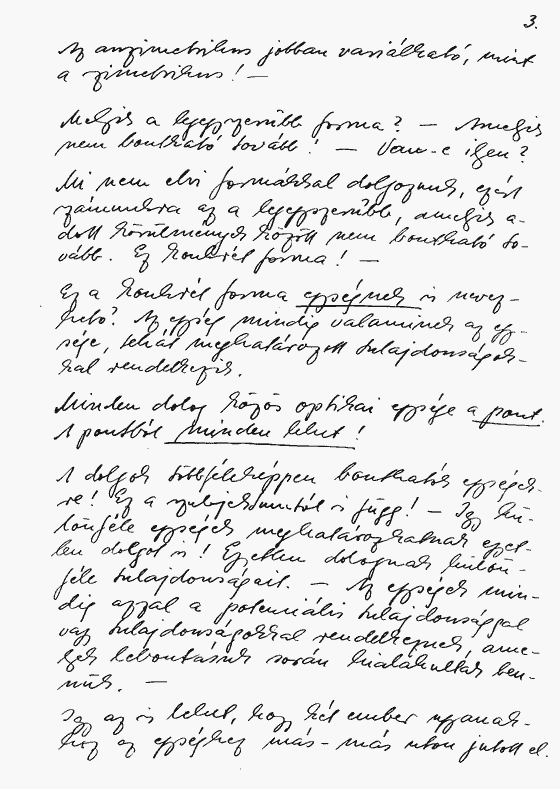 3.
Az aszimetrikus jobban variálható, mint
a szimetrikus! —
Melyik a legegyszerűbb forma? — Amelyik
nem bontható tovább! — Van-e ilyen?
Mi nem elvi formákkal dolgozunk, ezért
számunkra az a legegyszerűbb, amelyik a-
dott körülmények között nem bontható to-
vább. Ez konkrét forma! —
Ez a konkrét forma egységnek is nevez-
hető? Az egység mindig valaminek az egy-
sége, tehát meghatározott tulajdonságok-
kal rendelkezik.
Minden dolog közös optikai egysége a pont.
A pontból minden lehet!
A dolgok többféleképpen bonthatók egységek-
re! Ez a szubjektumtól is függ! — Így kü-
lönféle egységek meghatározhatnak egyet-
len dolgot is! Egyetlen dolognak külön-
féle tulajdonságait. — Az egységek min-
dig azzal a potenciális tulajdonsággal
vagy tulajdonságokkal rendelkeznek, ame-
lyek lebontásuk során kialakultak ben-
nük. —
Így az is lehet, hogy két ember ugyanah-
hoz az egységhez más-más úton jutott el.